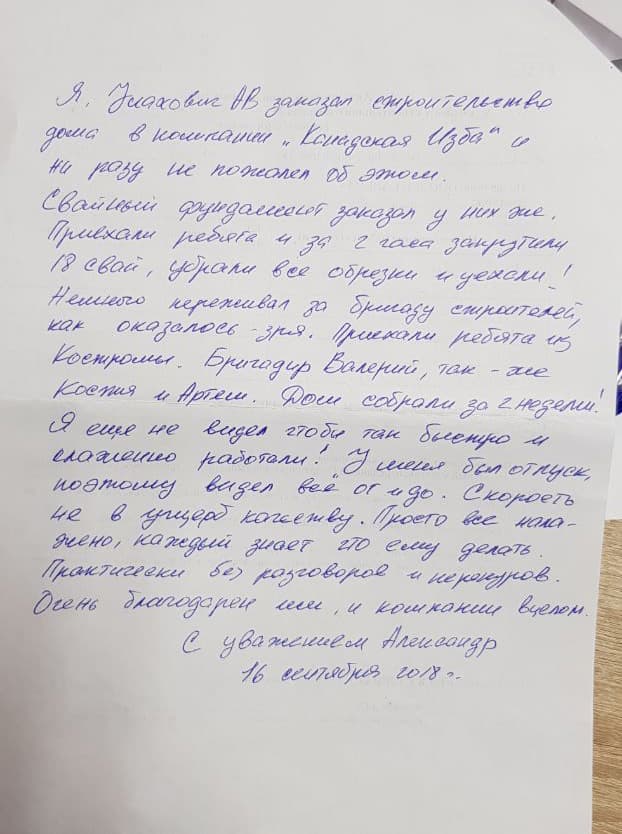 Я, Улахович АВ заказал строительство
дома в компании „Канадская Изба" и
ни разу не пожалел об этом.
Свайный фундамент заказал у них же.
Приехали ребята и за 2 часа закрутили
18 свай, убрали все обрезки и уехали!
Немного переживал за бригаду строителей,
как оказалось - зря. Приехали ребята из
Костромы. Бригадир Валерий, так - же
Костя и Артем. Дом собрали за 2 недели!
Я еще не видел чтобы так быстро и
слаженно работали! У меня был отпуск,
поэтому видел всё от и до. Скорость
не в ущерб качеству. Просто все нала-
жено, каждый знает что ему делать.
Практически без разговоров и перекуров.
Очень благодарен им, и компании вцелом.
С уважением Александр
16 сентября 2018 г.